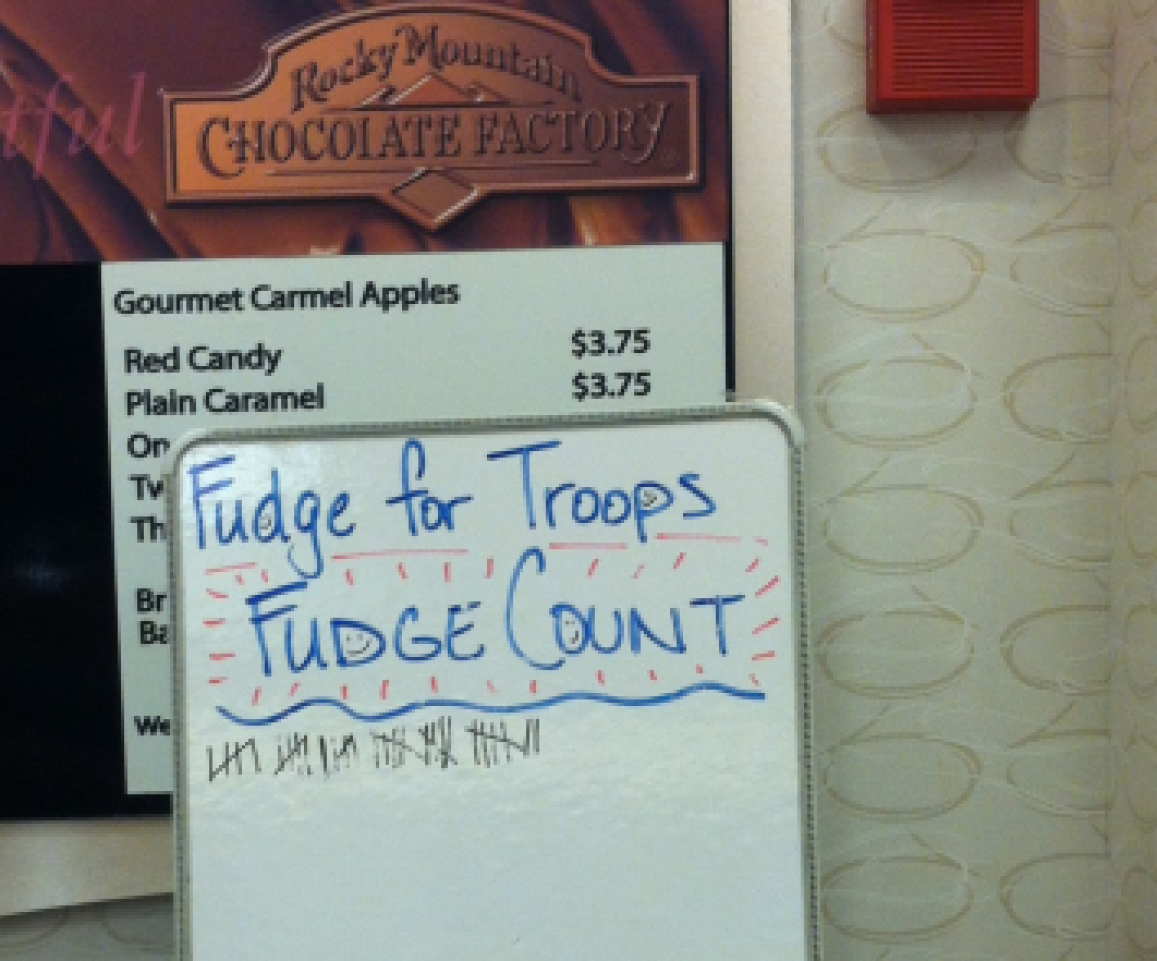 tful
Rocky Mountain
CHOCOLATE FACTORY
Gourmet Carmel Apples
Red Candy $3.75
Plain Caramel $3.75
On
Tw
Th
Br
Ba
We
Fudge for Troops
FUDGE COUNT